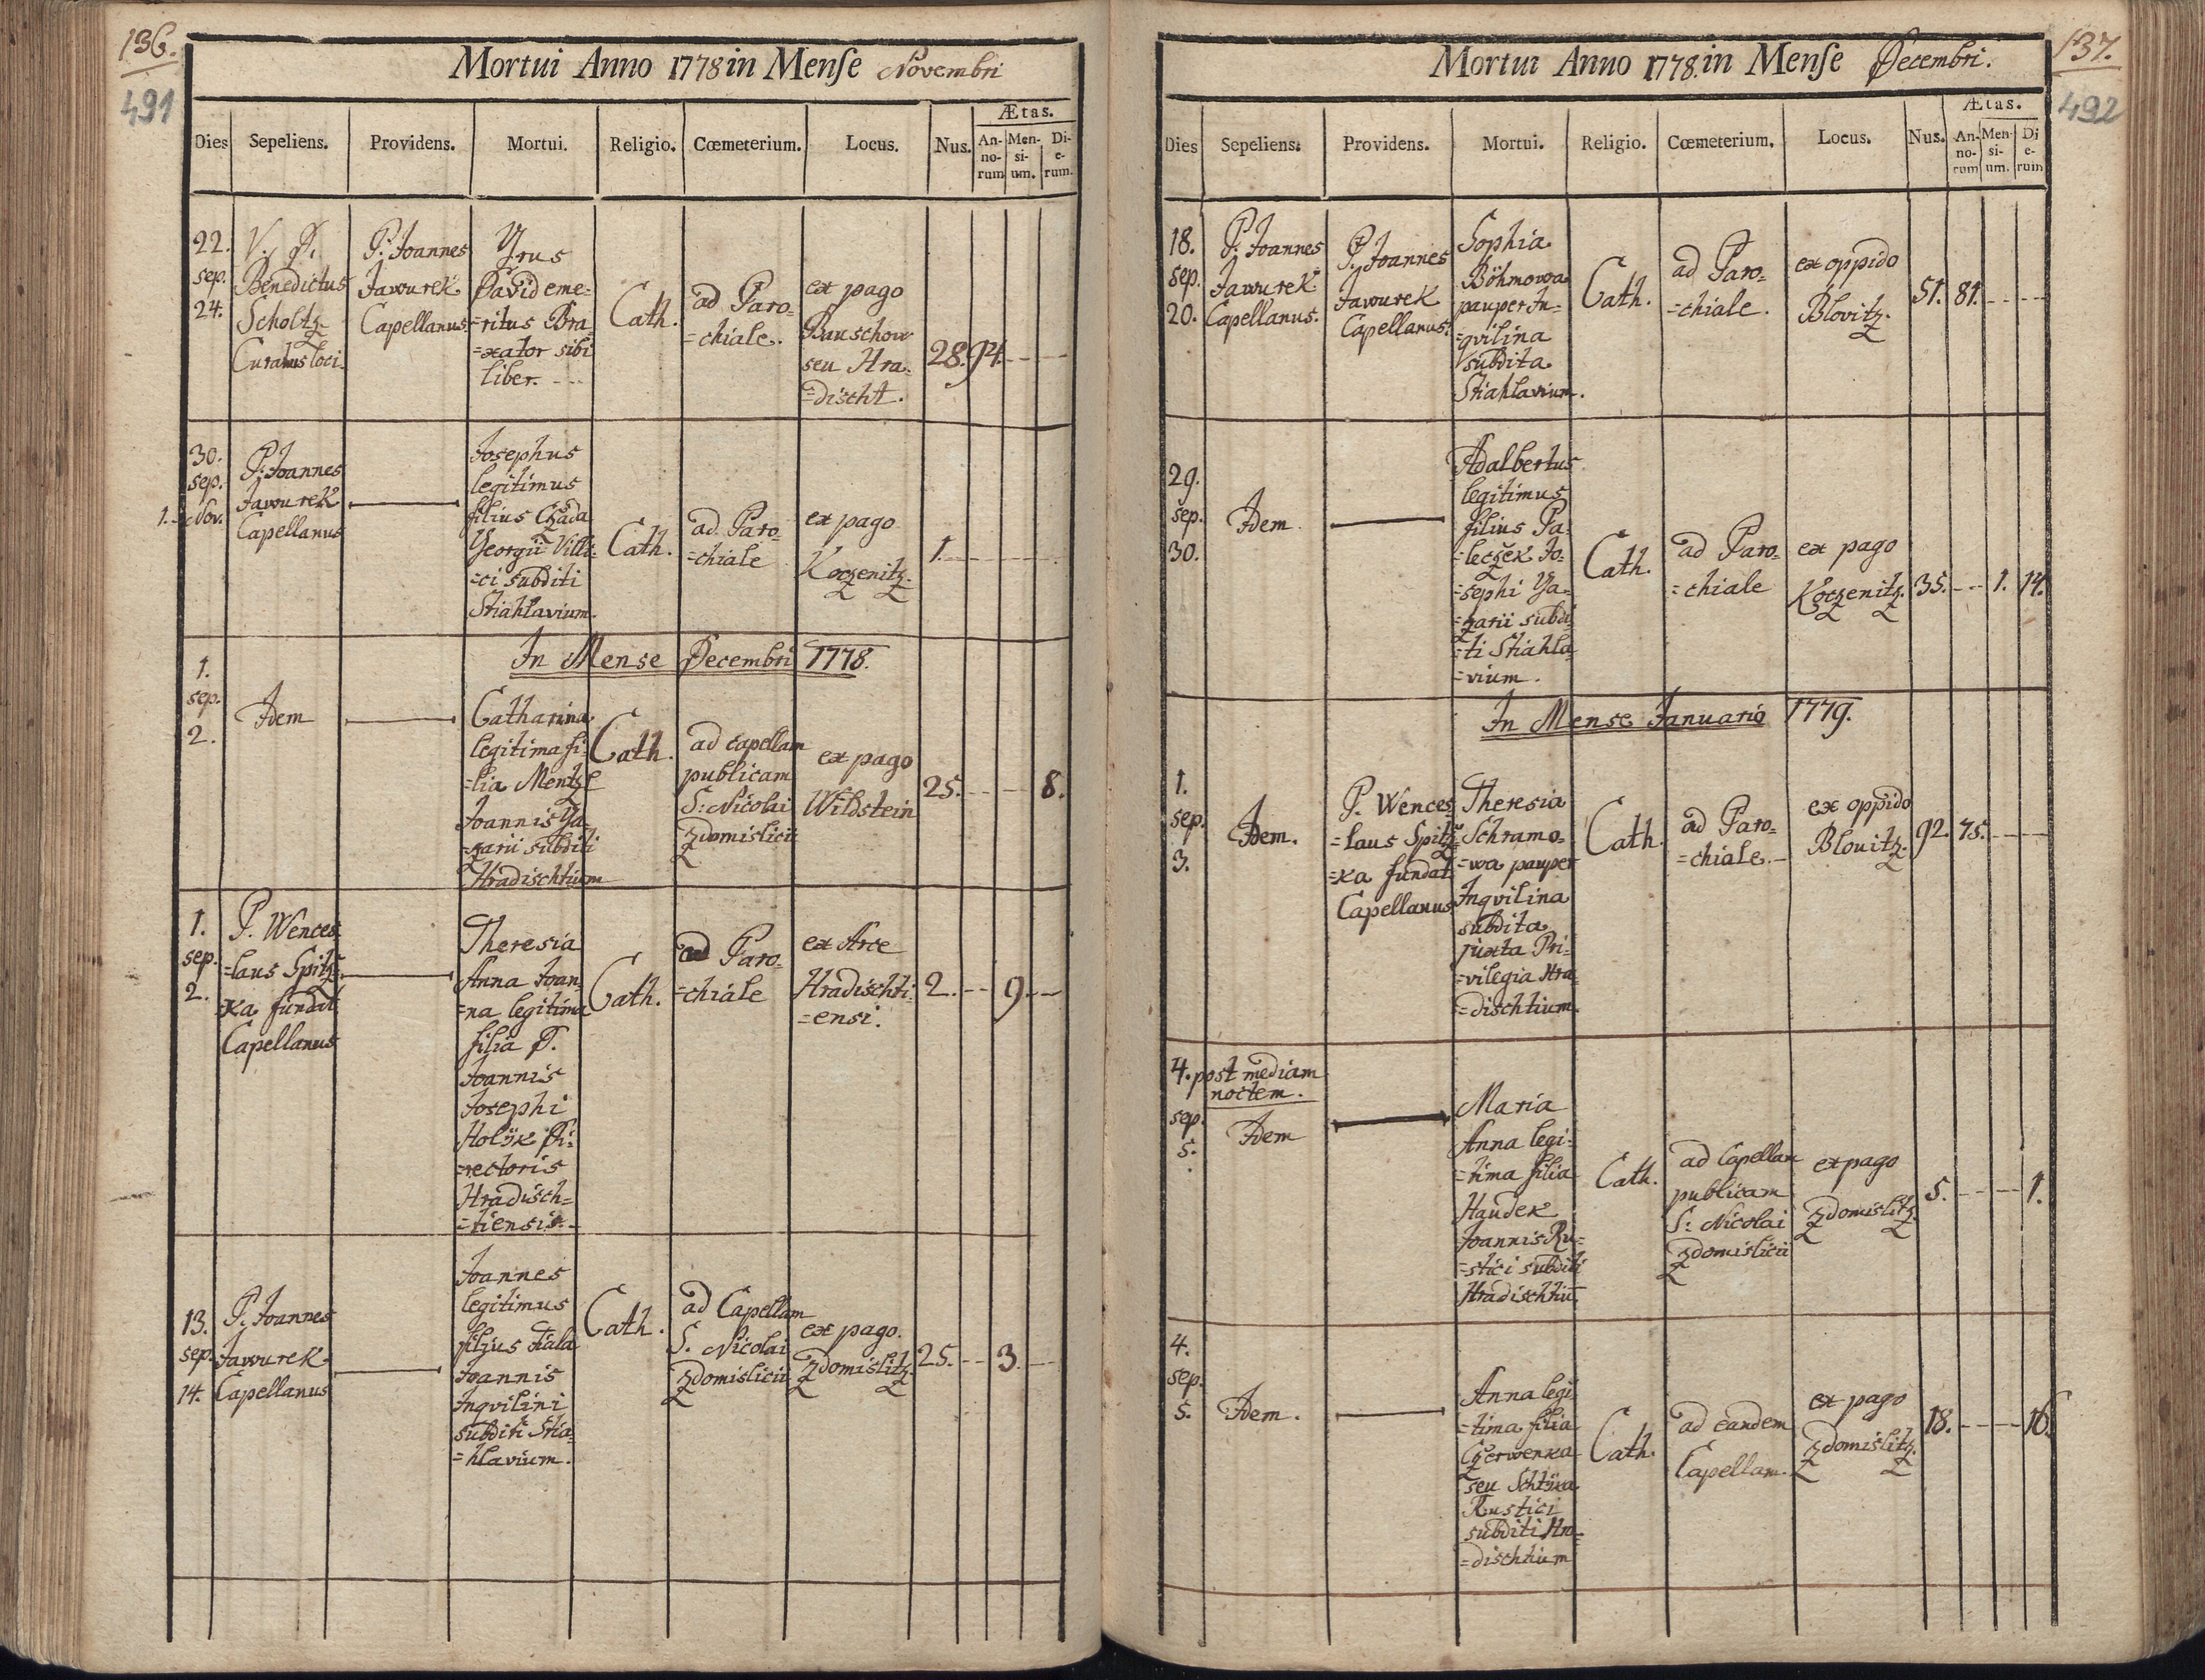 136.
491
Mortui Anno 1778 in Mense Novembri
Dies Sepeliens. Providens. Mortui. Religio. Cœmeterium. Locus. Nus. Ætas.
An-no-rum Men-si-um. Di-e-rum.
22. sep. 24.
V. D.
Benedictus
Scholtz
Curatus loci.
P. Joannes
Jawurek
Capellanus.
Yrus
David eme=
=ritus Bra
=xator sibi
liber. - - -
Cath.
ad Paro=
=chiale.
ex pago
Bauschow
seu Hra=
=discht.
28. 94. - - -
30. sep. 1. Nov.
P. Joannes
Jawurek
Capellanus
Josephus
legitimus
filius Cžada
Georgii Villi=
=ci subditi
Stiahlavium.
Cath.
ad Paro=
=chiale
ex pago
Koczenitz.
1. - - -
In Mense Decembri 1778.
1.
sep.
2.
Idem
Catharina
legitima fi=
=lia Mentzl
Joannis Ya=
=zarii subditi
Hradischtium
Cath.
ad capellam
publicam
S: Nicolai
Zdomislicii
ex pago
Wildstein
25. - - - 8.
1.
sep.
2.
P. Wences
=laus Spitz=
=ka fundat.
Capellanus
Theresia
Anna Joan=
=na legitima
filia D.
Joannis
Josephi
Holÿk Di=
=rectoris
Hradisch=
=tiensis.
Cath.
ad Paro=
=chiale
ex Arce
Hradischti=
=ensi.
2. - - 9. - -
13.
sep.
14.
P. Joannes
Jawurek
Capellanus
Joannes
legitimus
filius Fiala
Joannis
Inqvilini
subditi Stia=
=hlavium.
Cath.
ad Capellam
S. Nicolai
Zdomislicii
ex pago.
Zdomislitz.
25. - - 3. - -
137.
492
Mortui Anno 1778. in Mense Decembri.
Dies Sepeliens. Providens. Mortui. Religio. Cœmeterium. Locus. Nus. Ætas.
An-no-rum Men-si-um. Di-e-rum
18.
sep.
20.
P. Joannes
Jawurek
Capellanus.
P. Joannes
Jawurek
Capellanus.
Sophia
Böhmowa
pauper In=
=qvilina
subdita
Stiahlavium.
Cath.
ad Paro=
=chiale.
ex oppido
Blovitz.
51. 81. - - -
29.
sep.
30.
Idem.
Adalbertus
legitimus
filius Pa=
=leczek Jo=
=sephi Ya=
=zarii subdi
=ti Stiahla=
=vium.
Cath.
ad Paro=
=chiale
ex pago
Koczenitz.
35. - - 1. 14.
In Mense Januario 1779.
1.
sep.
3.
Idem.
P. Wences
=laus Spitz=
=ka fundat.
Capellanus
Theresia
Schramo=
=wa pauper
Inqvilina
subdita
juxta Pri=
=vilegia Hra=
=dischtium.
Cath.
ad Paro=
=chiale.
ex oppido
Blouitz.
92. 75. - - -
4. post mediam
noctem.
sep.
5.
Idem
Maria
Anna legi=
=tima filia
Haudek
Joannis Ru=
=stici subditi
Hradischtiū.
Cath.
ad Capellam
publicam
S: Nicolai
Zdomislicii
ex pago
Zdomislitz.
5. - - - 1.
4.
sep.
5.
Idem.
Anna legi
=tima filia
Czerwenka
seu Schtÿka
Rustici
subditi Hra=
=dischtium
Cath.
ad eandem
Capellam.
ex pago
Zdomislitz.
18. - - - 16.